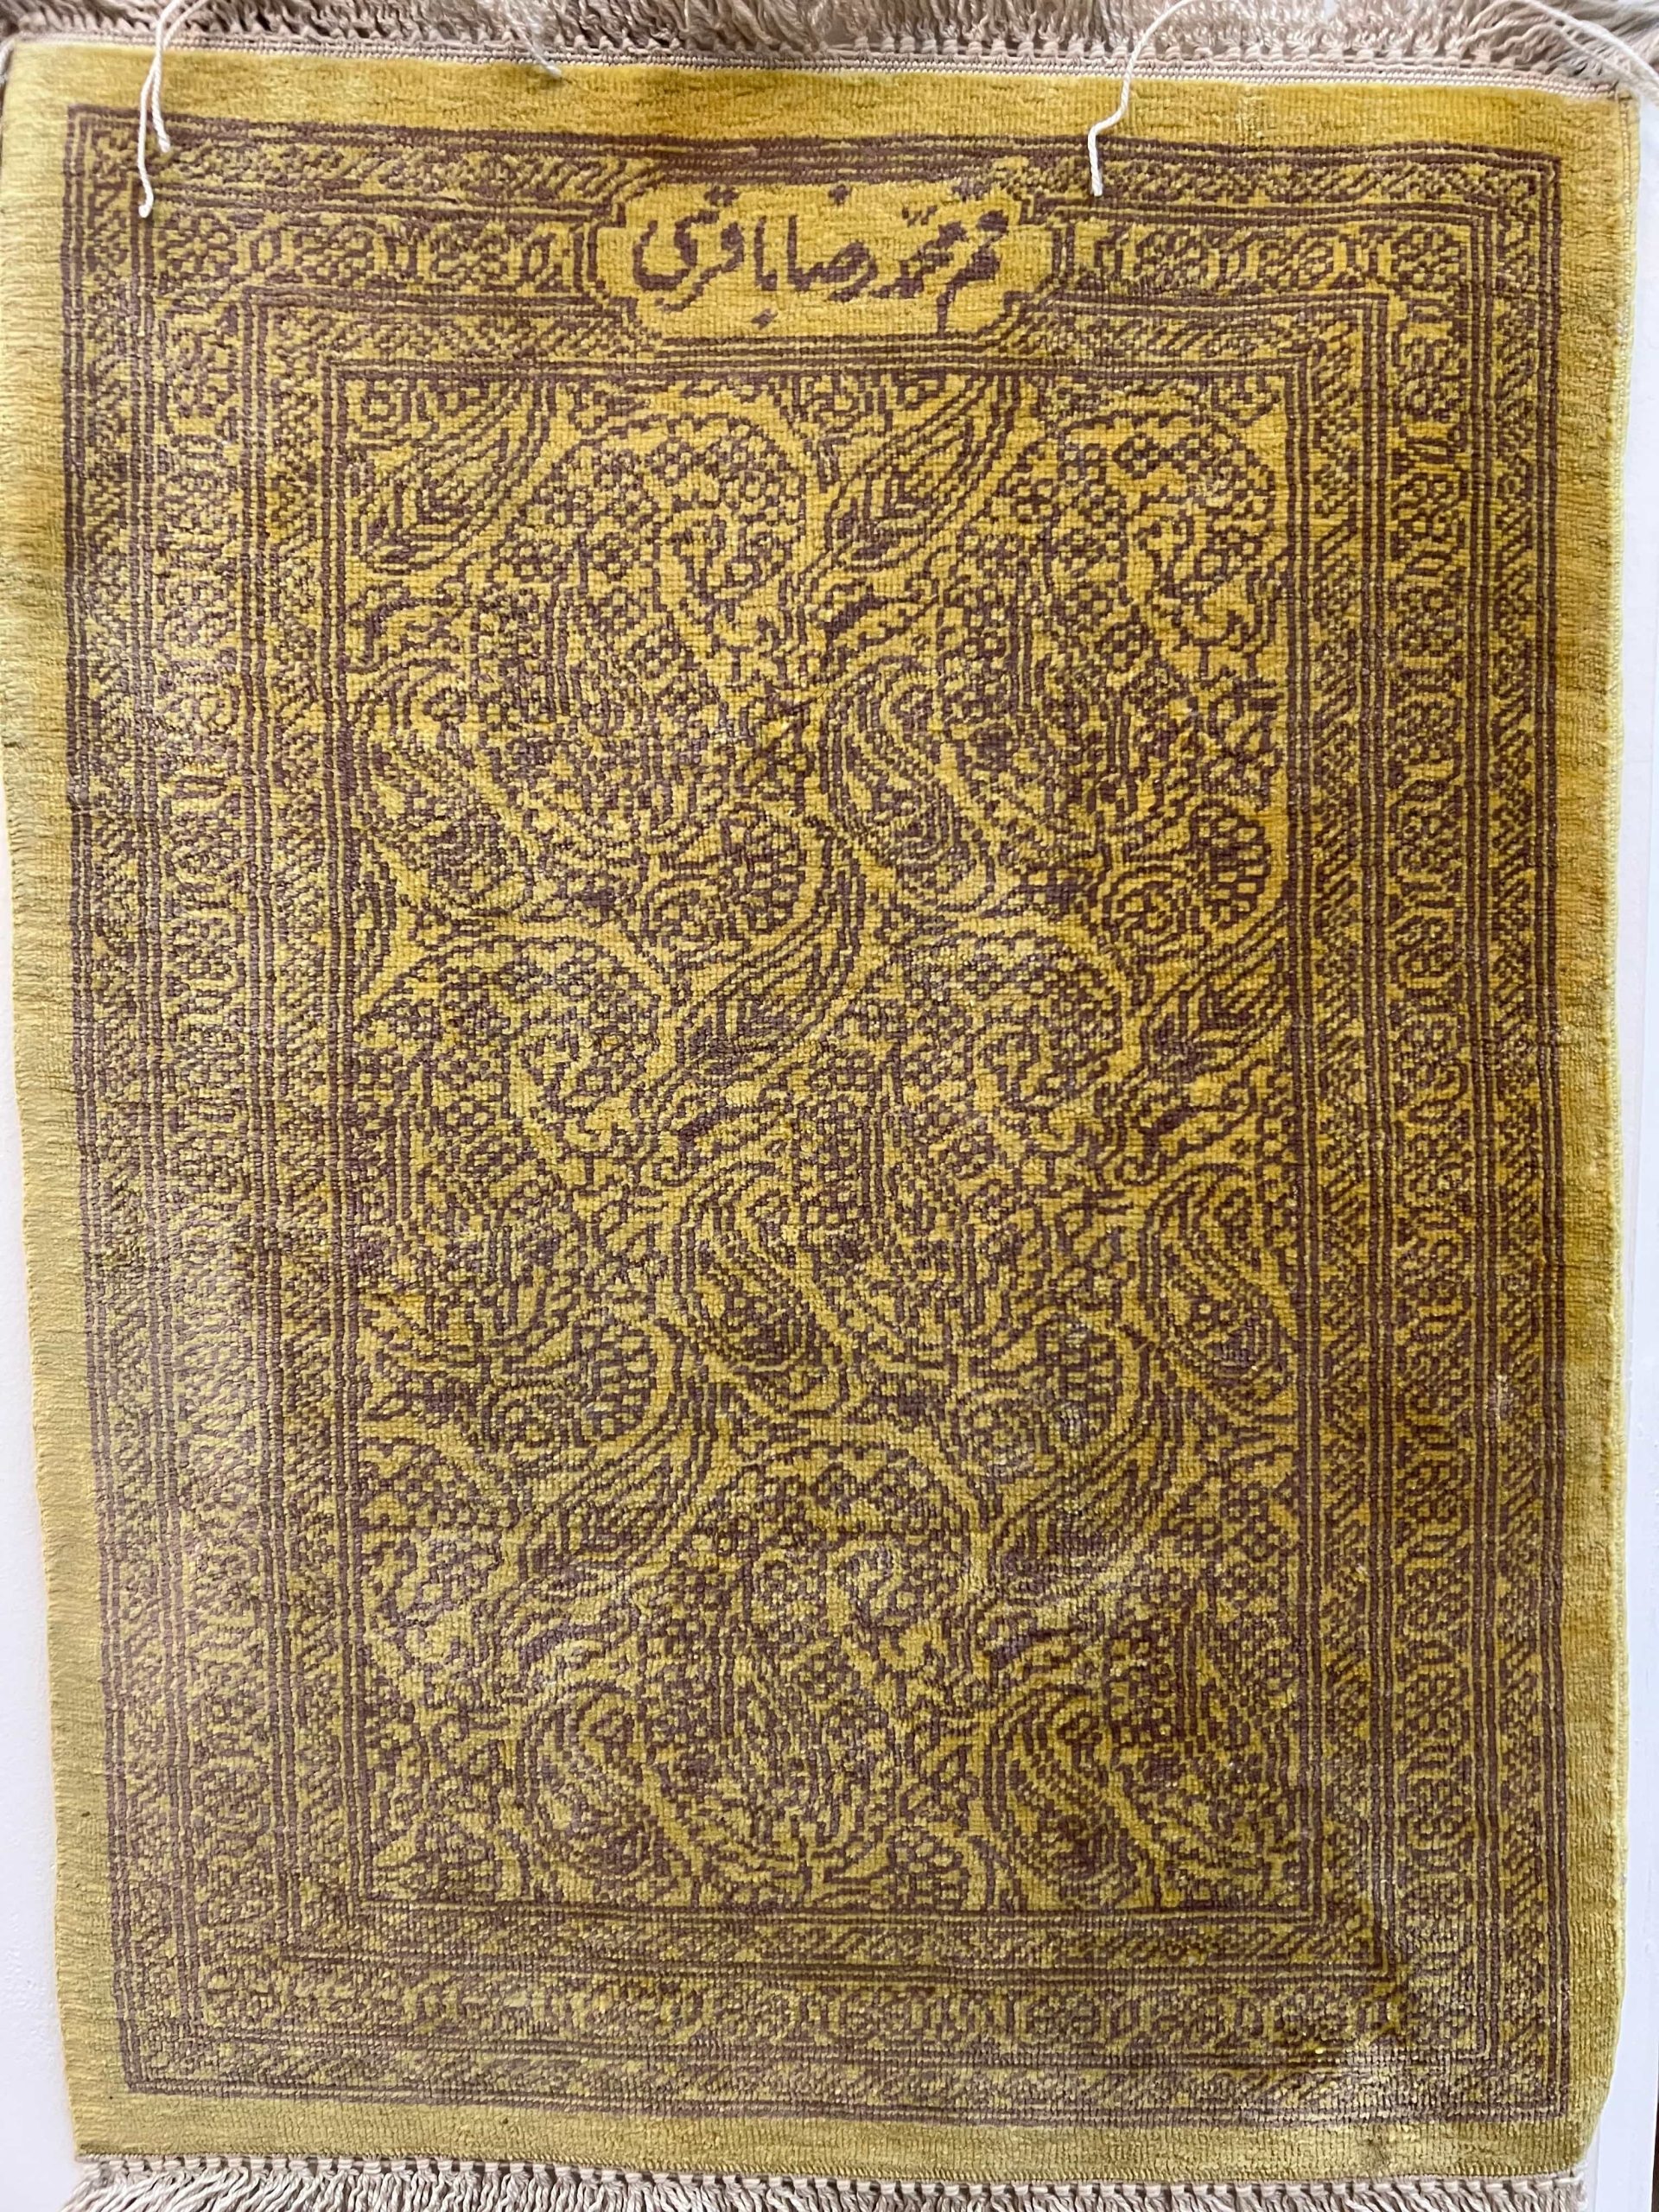 محمد رضا باقری